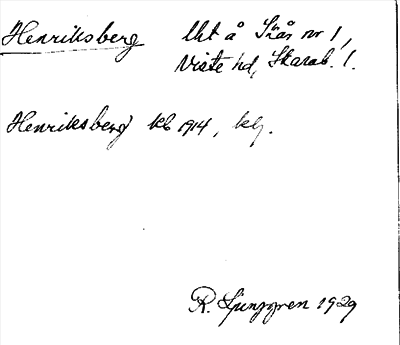 Henriksberg lht å Srås nr 1,
Viste hd, Skarab. l.
Henriksberg kb 1914, klj.
R. Ljunggren 1929